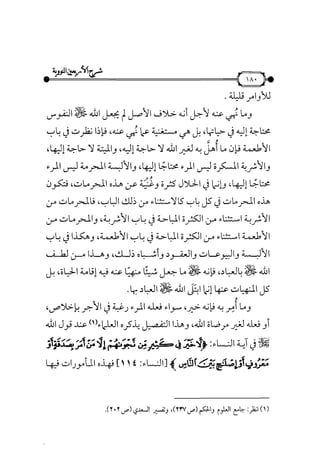 شرح الأربعين النووية
١٨٠
للأوامر قليلة .
وما نُهي عنه لأجل أنه خلاف الأصل لم يجعل الله ﷻ النفوس
محتاجة إليه في حياتها، بل هي مستغنية عما نُهي عنه، فإذا نظرت في باب
الأطعمة فإن ما أُهلّ به لغير الله لا حاجة إليه، والميتة لا حاجة إليها،
والأشربة المسكرة ليس المرء محتاجًا إليها، والألبسة المحرمة ليس المرء
محتاجًا إليها، وإنما في الحلال كثرة وغُنْيَة عن هذه المحرمات، فتكون
هذه المحرمات في كل باب كالاستثناء من ذلك الباب، فالمحرمات من
الأشربة استثناء من الكثرة المباحة في باب الأشربة، والمحرمات من
الأطعمة استثناء من الكثرة المباحة في باب الأطعمة، وهكذا في باب
الألبسة والبيوعات والعقود وأشباه ذلك، وهذا من لطف
الله ﷻ بالعباد، فإنه ﷻ ما جعل شيئًا منهيًا عنه فيه إقامة الحياة، بل
كل المنهيات عنها إنما ابتلى الله ﷻ العباد بها.
وما أُمر به فإنه خير، سواء فعله المرء رغبة في الأجر بإخلاص،
أو فعله لغير مرضاة الله، وهذا التفصيل يذكره العلماء(١) عند قول الله
ﷻ في آية النساء: ﴿لَّا خَيْرَ فِي كَثِيرٍ مِّن نَّجْوَىٰهُمْ إِلَّا مَنْ أَمَرَ بِصَدَقَةٍ أَوْ
مَعْرُوفٍ أَوْ إِصْلَٰحٍ بَيْنَ النَّاسِ﴾ [النساء: ١١٤] فهذه المأمورات فيها
(١) انظر: جامع العلوم والحكم (ص ٢٣٧)، وتفسير السعدي (ص ٢٠٢).